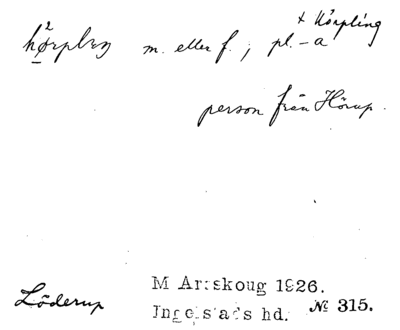 x Hörpling
hø²rpleŋ m. eller f.; pl. -a
person från Hörup.
Löderup
M Areskoug 1926.
Ingelstads hd. № 315.